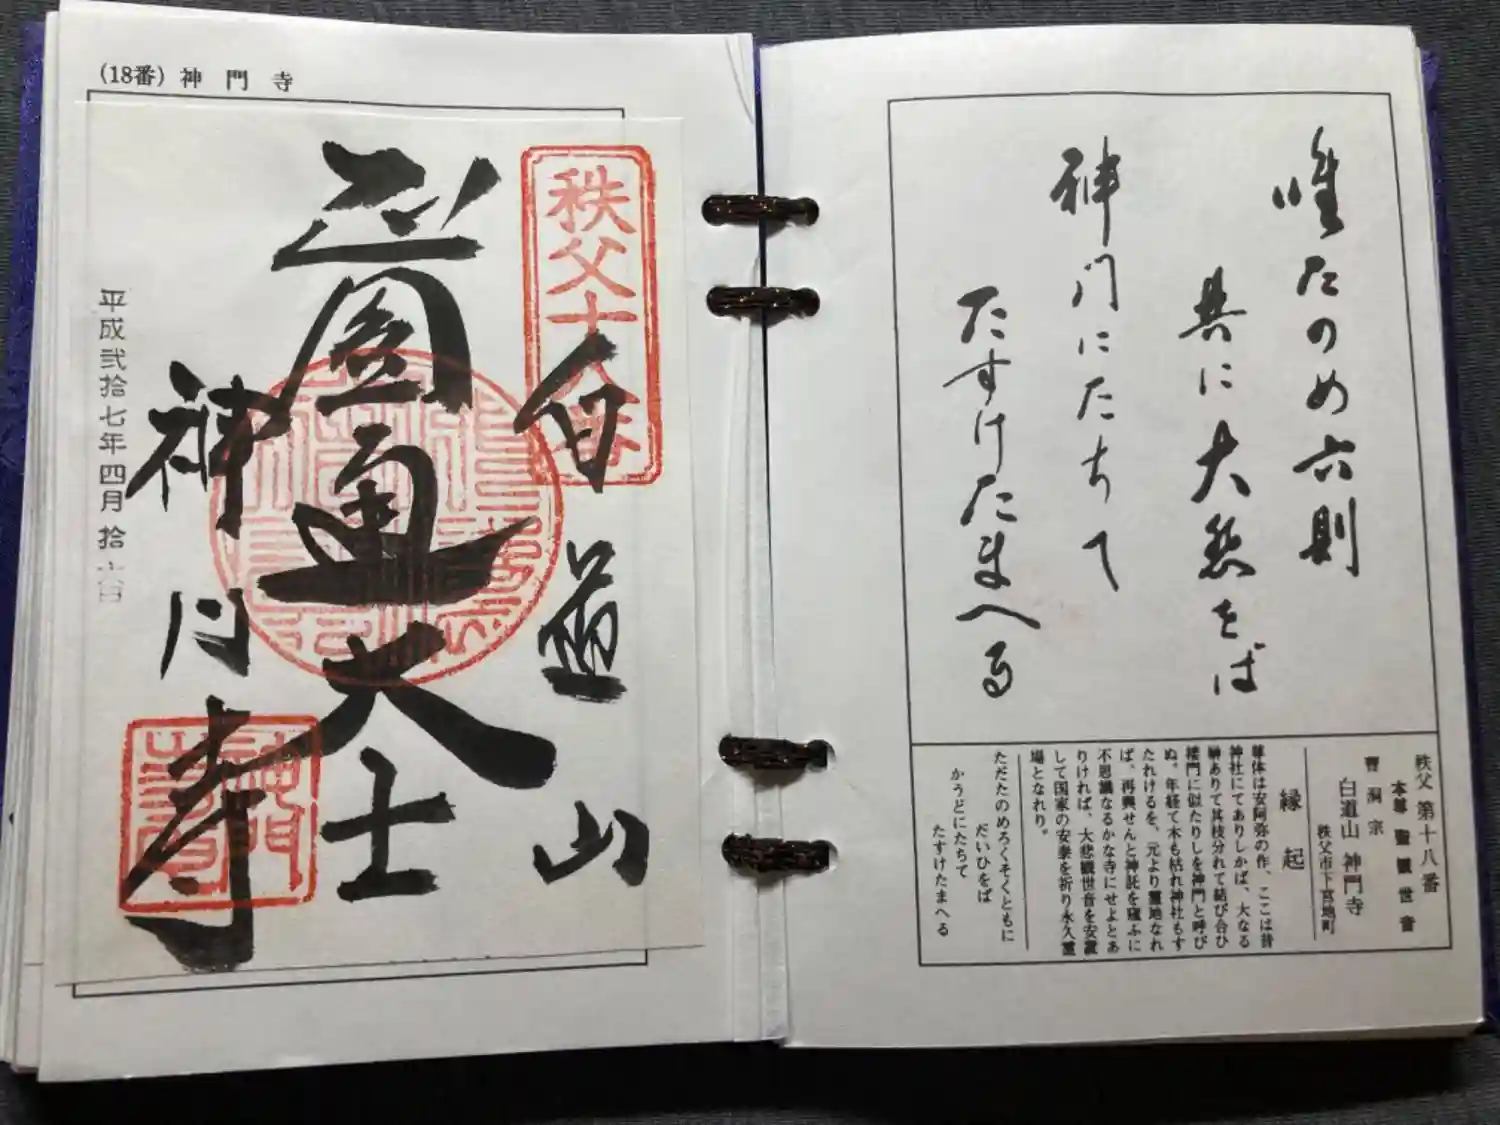 (18番) 神門寺
秩父十八番
白道山
正圓通大士
神門寺
平成弐拾七年四月拾六日
唯たのめ六則
共に大悲をば
神门にたちて
たすけたまへる
秩父 第十八番
本尊 聖観世音
曹洞宗
白道山 神門寺
秩父市下宮地町
縁起
尊体は安阿弥の作、ここは昔
神社にてありしかば、大なる
榊ありて其枝分れて結び合ひ
楼門に似たりしを神門と呼び
ぬ。年経て木も枯れ神社もす
たれけるを、元より霊地なれ
ば、再興せんと神託を窺ふに
不思議なるかな寺にせよとあ
りければ、大悲観世音を安置
して国家の安泰を祈り永久霊
場となれり。
ただたのめろくそくともに
だいひをば
かうどにたちて
たすけたまへる